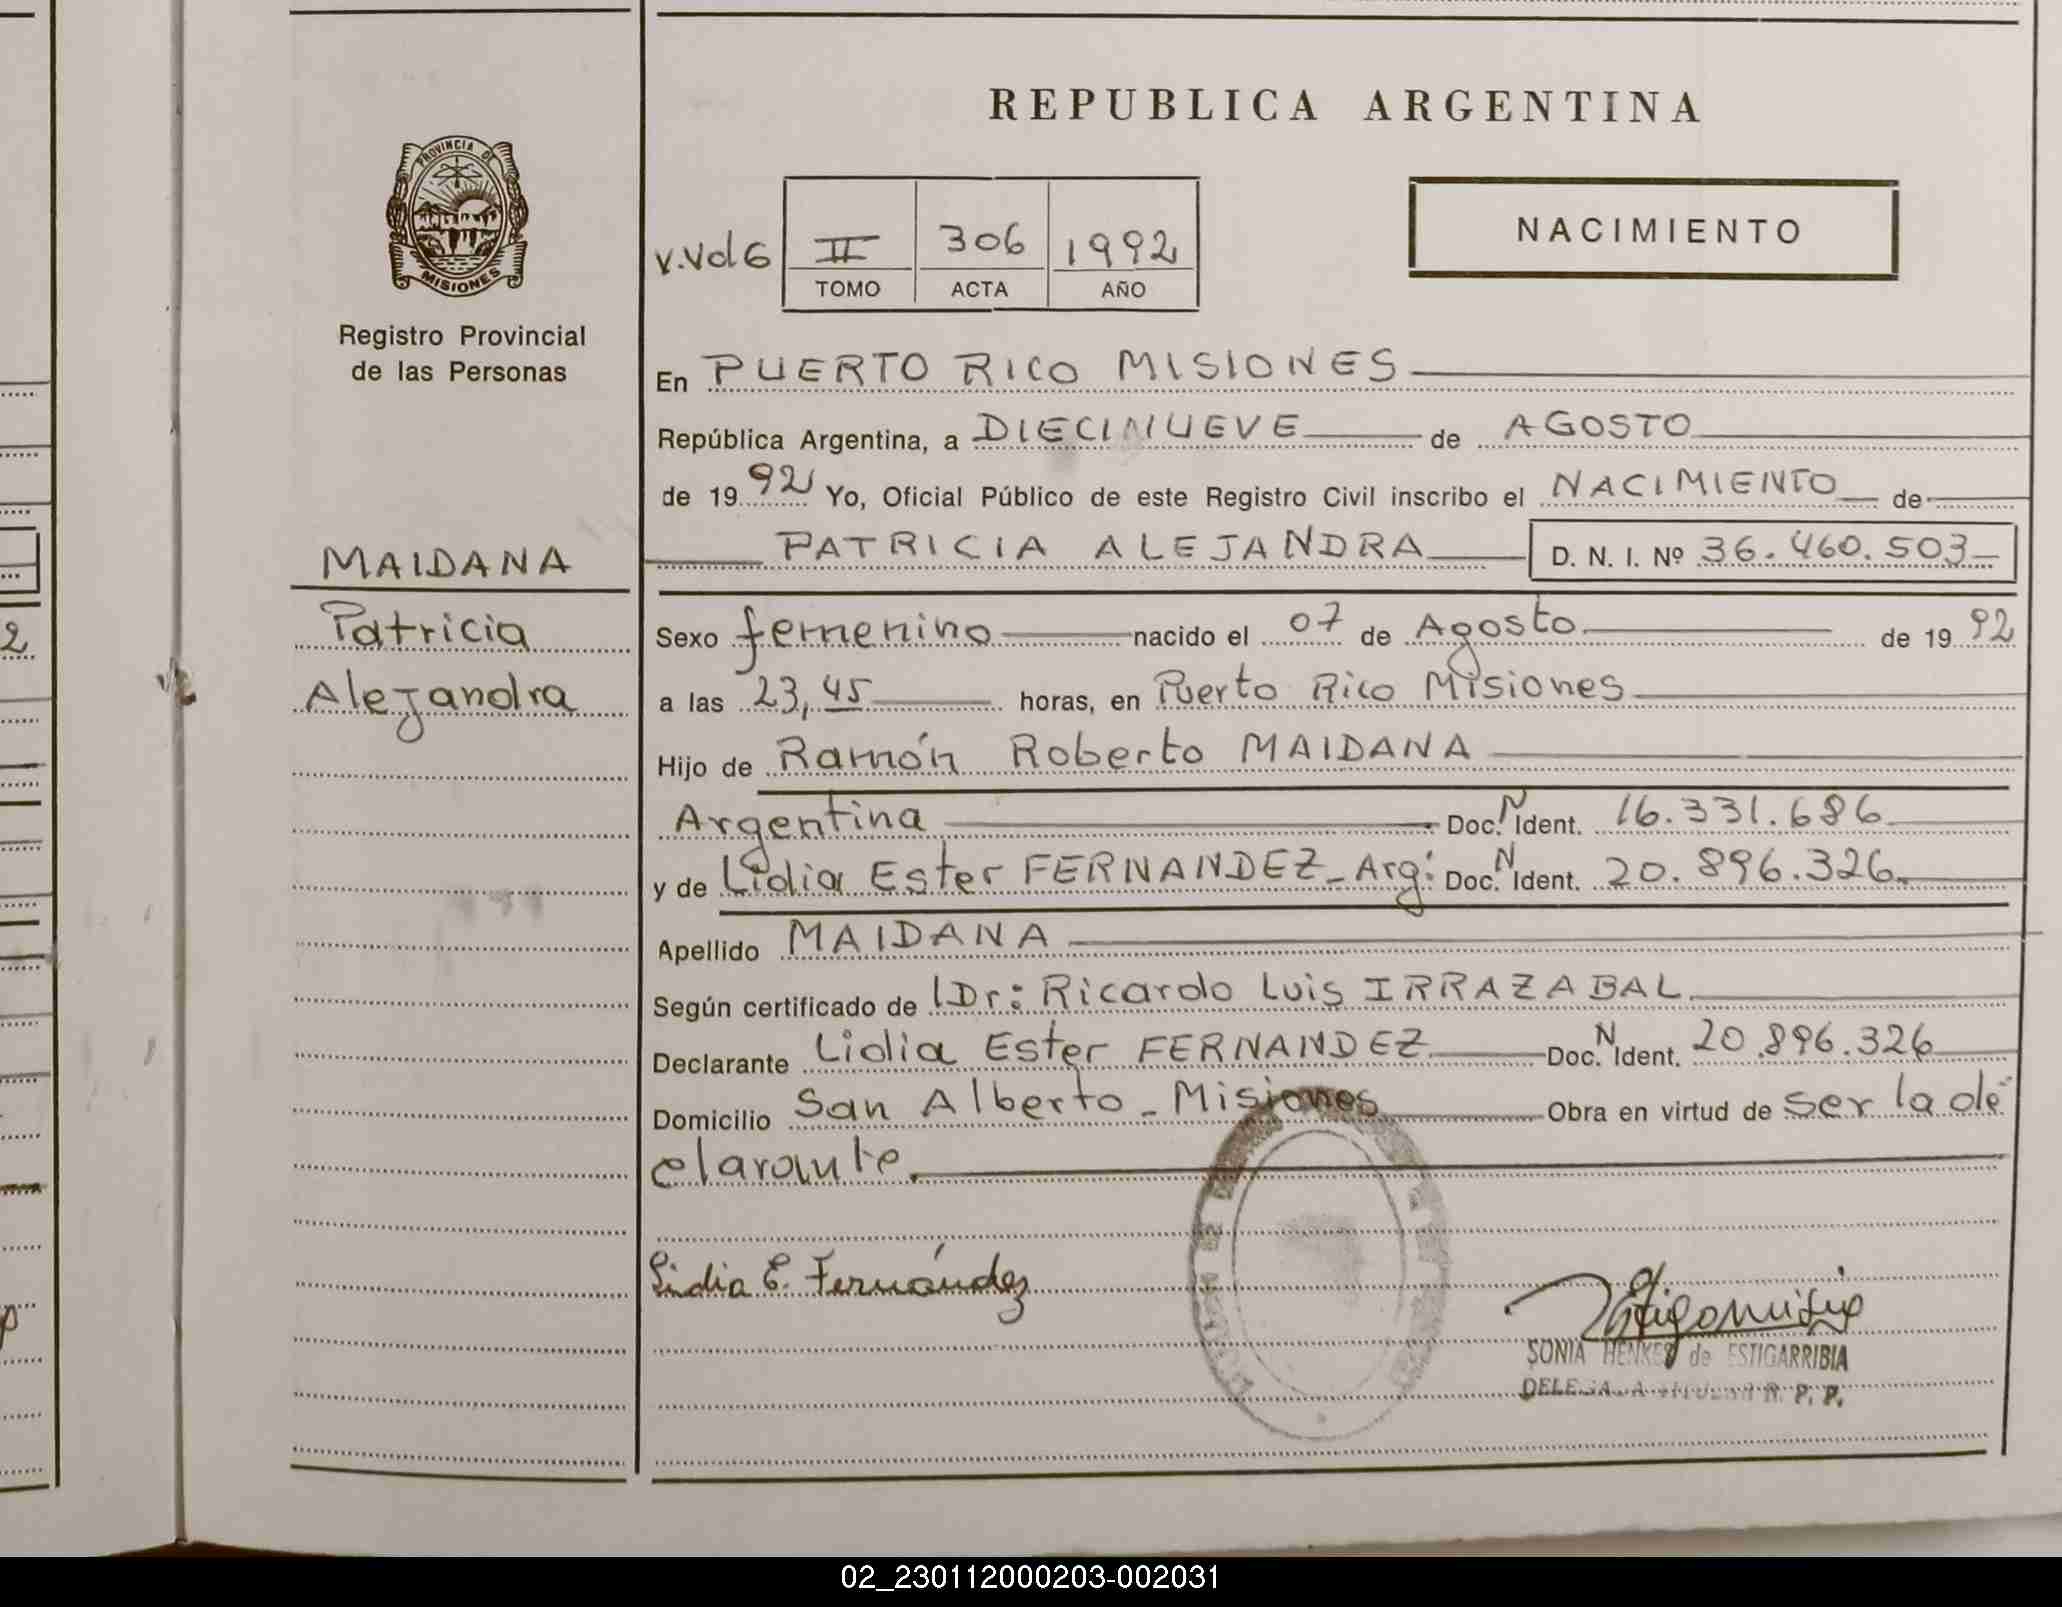 REPUBLICA ARGENTINA
PROVINCIA DE
MISIONES
Registro Provincial
de las Personas
NACIMIENTO
II 306 1992
TOMO ACTA AÑO
En PUERTO RICO MISIONES
República Argentina, a DIECINUEVE de AGOSTO
de 1992 Yo, Oficial Público de este Registro Civil inscribo el NACIMIENTO de
PATRICIA ALEJANDRA D. N. I. Nº 36.460.503
MAIDANA
Patricia
Alejandra
Sexo femenino nacido el 07 de Agosto de 1992
a las 23,45 horas, en Puerto Rico Misiones
Hijo de Ramón Roberto MAIDANA
Argentina Doc. N Ident. 16.331.686
y de Lidia Ester FERNANDEZ - Arg: Doc. N Ident. 20.896.326
Apellido MAIDANA
Según certificado de Dr: Ricardo Luis IRRAZABAL
Declarante Lidia Ester FERNANDEZ Doc. N Ident. 20.896.326
Domicilio San Alberto - Misiones Obra en virtud de ser la de
clarante.
Lidia E. Fernández
SONIA HENKES de ESTIGARRIBIA
R. P. P.
02_230112000203-002031